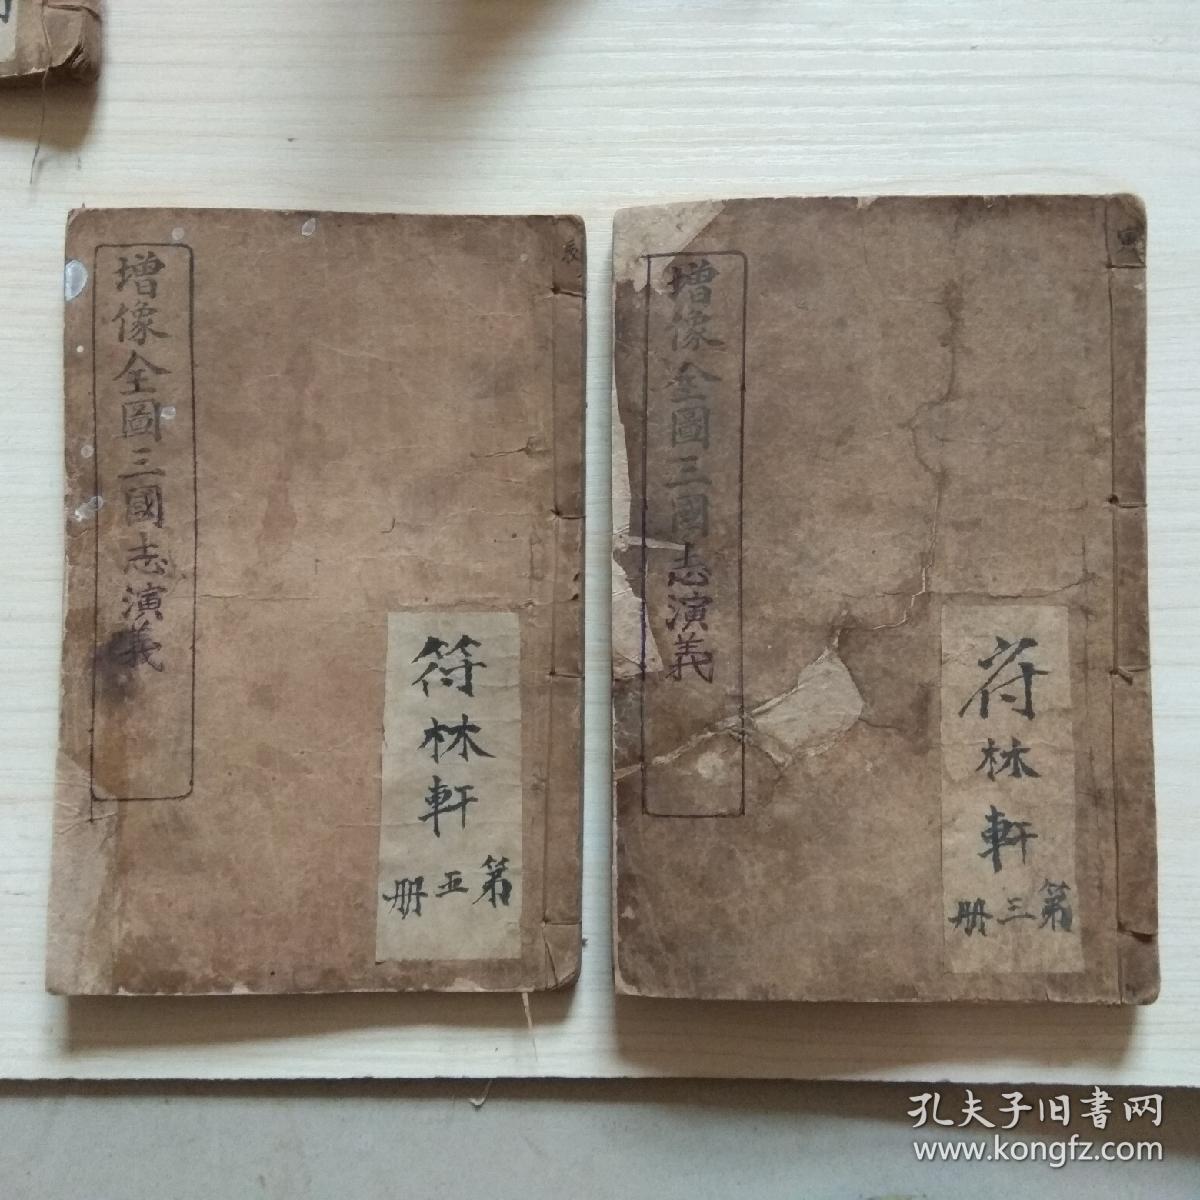 辰
增像全圖三國志演義
符林軒
第五册
寅
增像全圖三國志演義
符林軒
第三册
孔夫子旧書网
www.kongfz.com